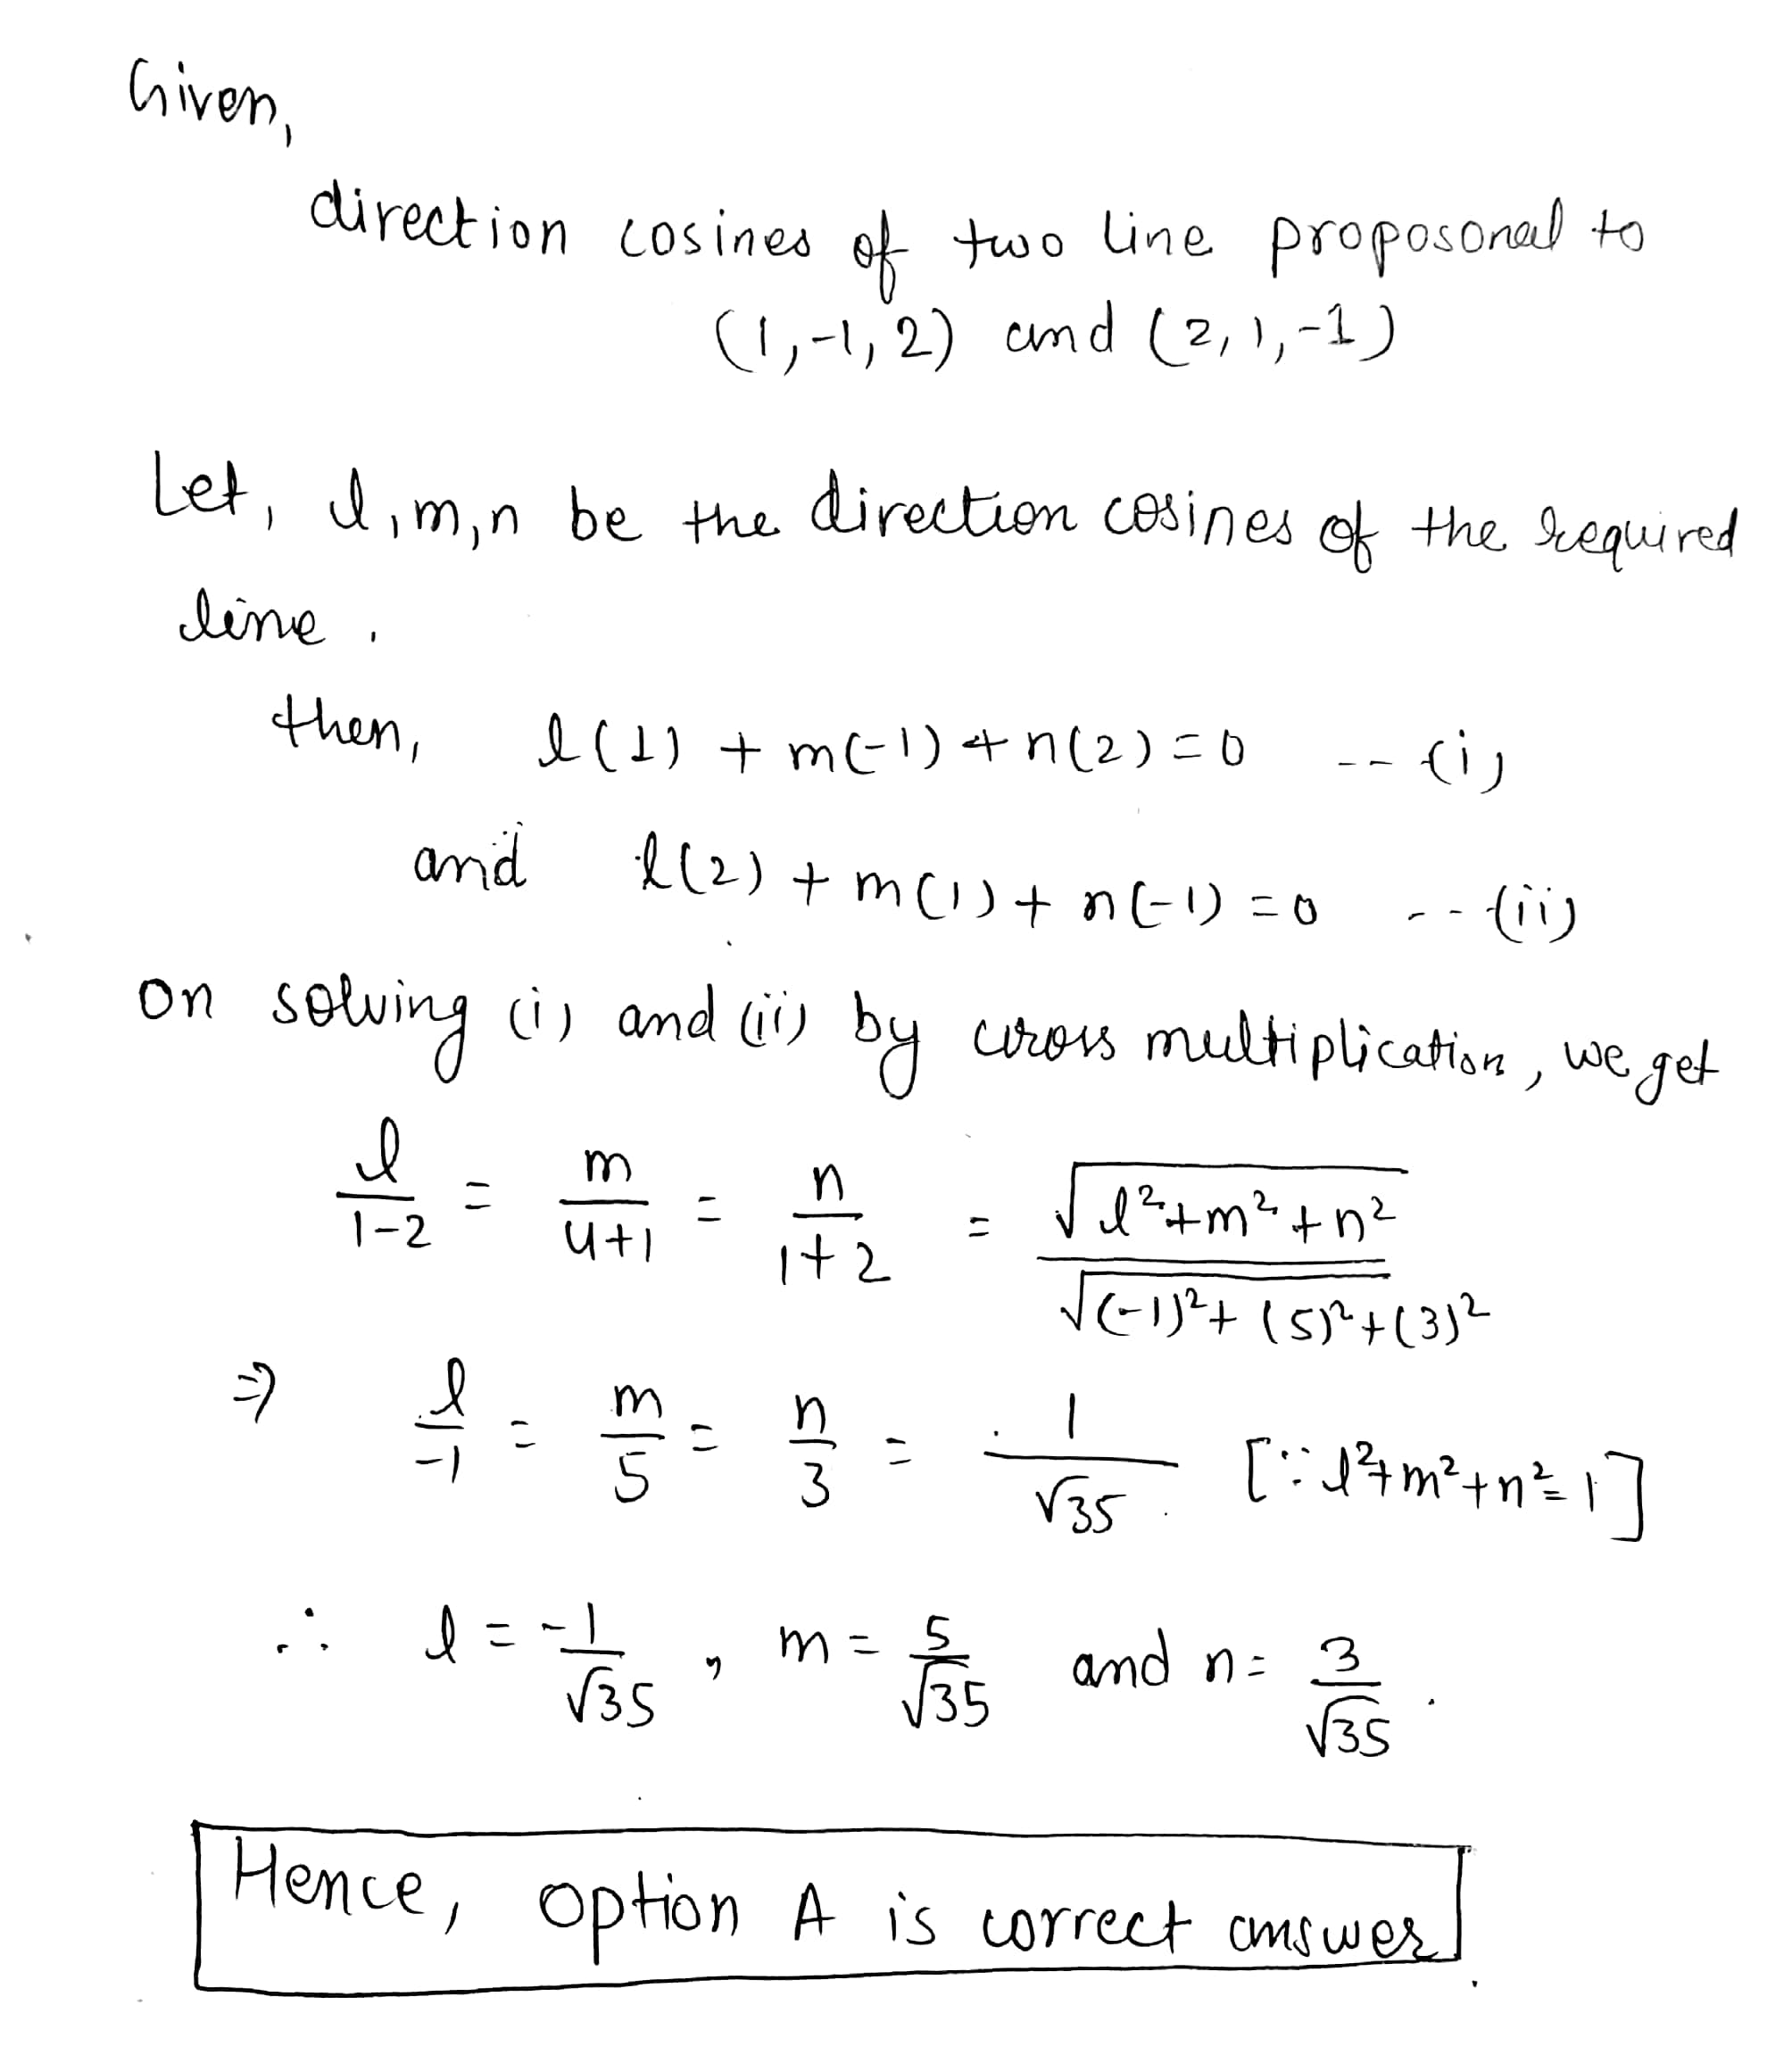 Given,
direction cosines of two line proposonal to
(1,-1,2) and (2,1,-1)
Let, l,m,n be the direction cosines of the required
line.
then, l(1) + m(-1) + n(2) = 0 --- (i)
and l(2) + m(1) + n(-1) = 0 --- (ii)
on solving (i) and (ii) by cross multiplication, we get
l/(1-2) = m/(4+1) = n/(1+2) = √(l²+m²+n²)/√((-1)²+(5)²+(3)²)
⇒ l/-1 = m/5 = n/3 = 1/√35 [∵ l²+m²+n²=1]
∴ l = -1/√35, m = 5/√35 and n = 3/√35.
Hence, option A is correct answer